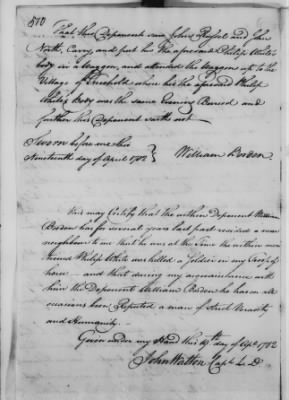 570
That this Deponent saw John Russel and John
North, Carry and put her the aforesaid Philip White's
body in a Waggon, and attended the Waggon into to the
Village of Freehold where his the aforesaid Philip
White's Body was the same Evening Buried and
further this Deponent saith not
Sworn before me this
Nineteenth day of April 1782 } William Borden.
this may Certify that the within Deponent William
Borden has for several years last past resided a near
neighbour to me that he was at the Time the within men
tioned Philip White was killed a Soldier in my Troop of
horse — and that during my acquaintance with
him the Deponent William Borden he has on all
occasions been Reputed a man of strict Veracity
and Humanity.
Given under my Hand this 19th day of Apl. 1782
John Walton Capt. L. D.